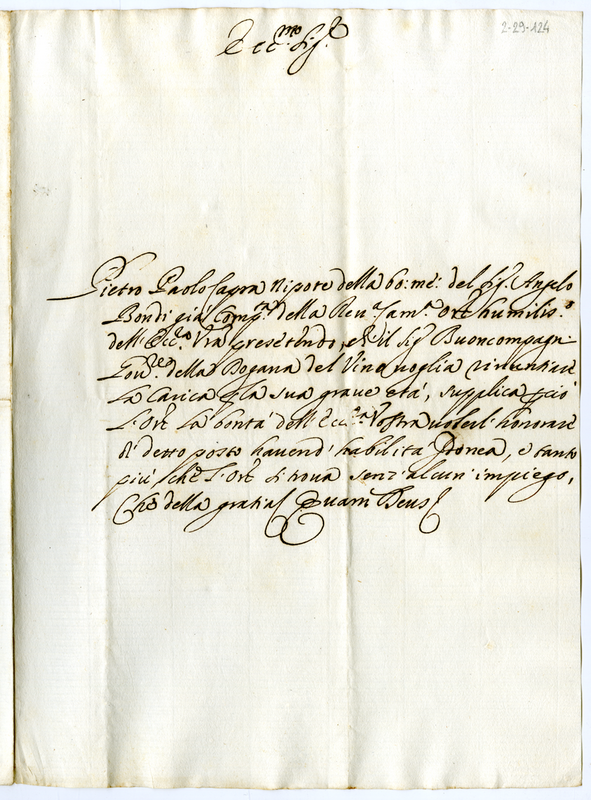 2-29-124
Ecc.mo Sig.re
Pietro Paolo Sagra Nipote della bo: me: del Sig.r Angelo
Bondi già Comp.ta della Reu.a Cam.a Or.e humilis.o
dell'Ecc.za Vra presetendo, che il Sig.r Buoncompagni
Gou.re della Dogana del Vino uoglia rinuntiare
la Carica p la sua graue età, supplica p ciò
l'Or.e la bontà dell'Ecc.za Vostra uolerl'honorare
di detto posto hauend'habilità Idonea, e tanto
più che l'Or.e si troua senz'alcun'impiego,
Che della gratia Quam Deus